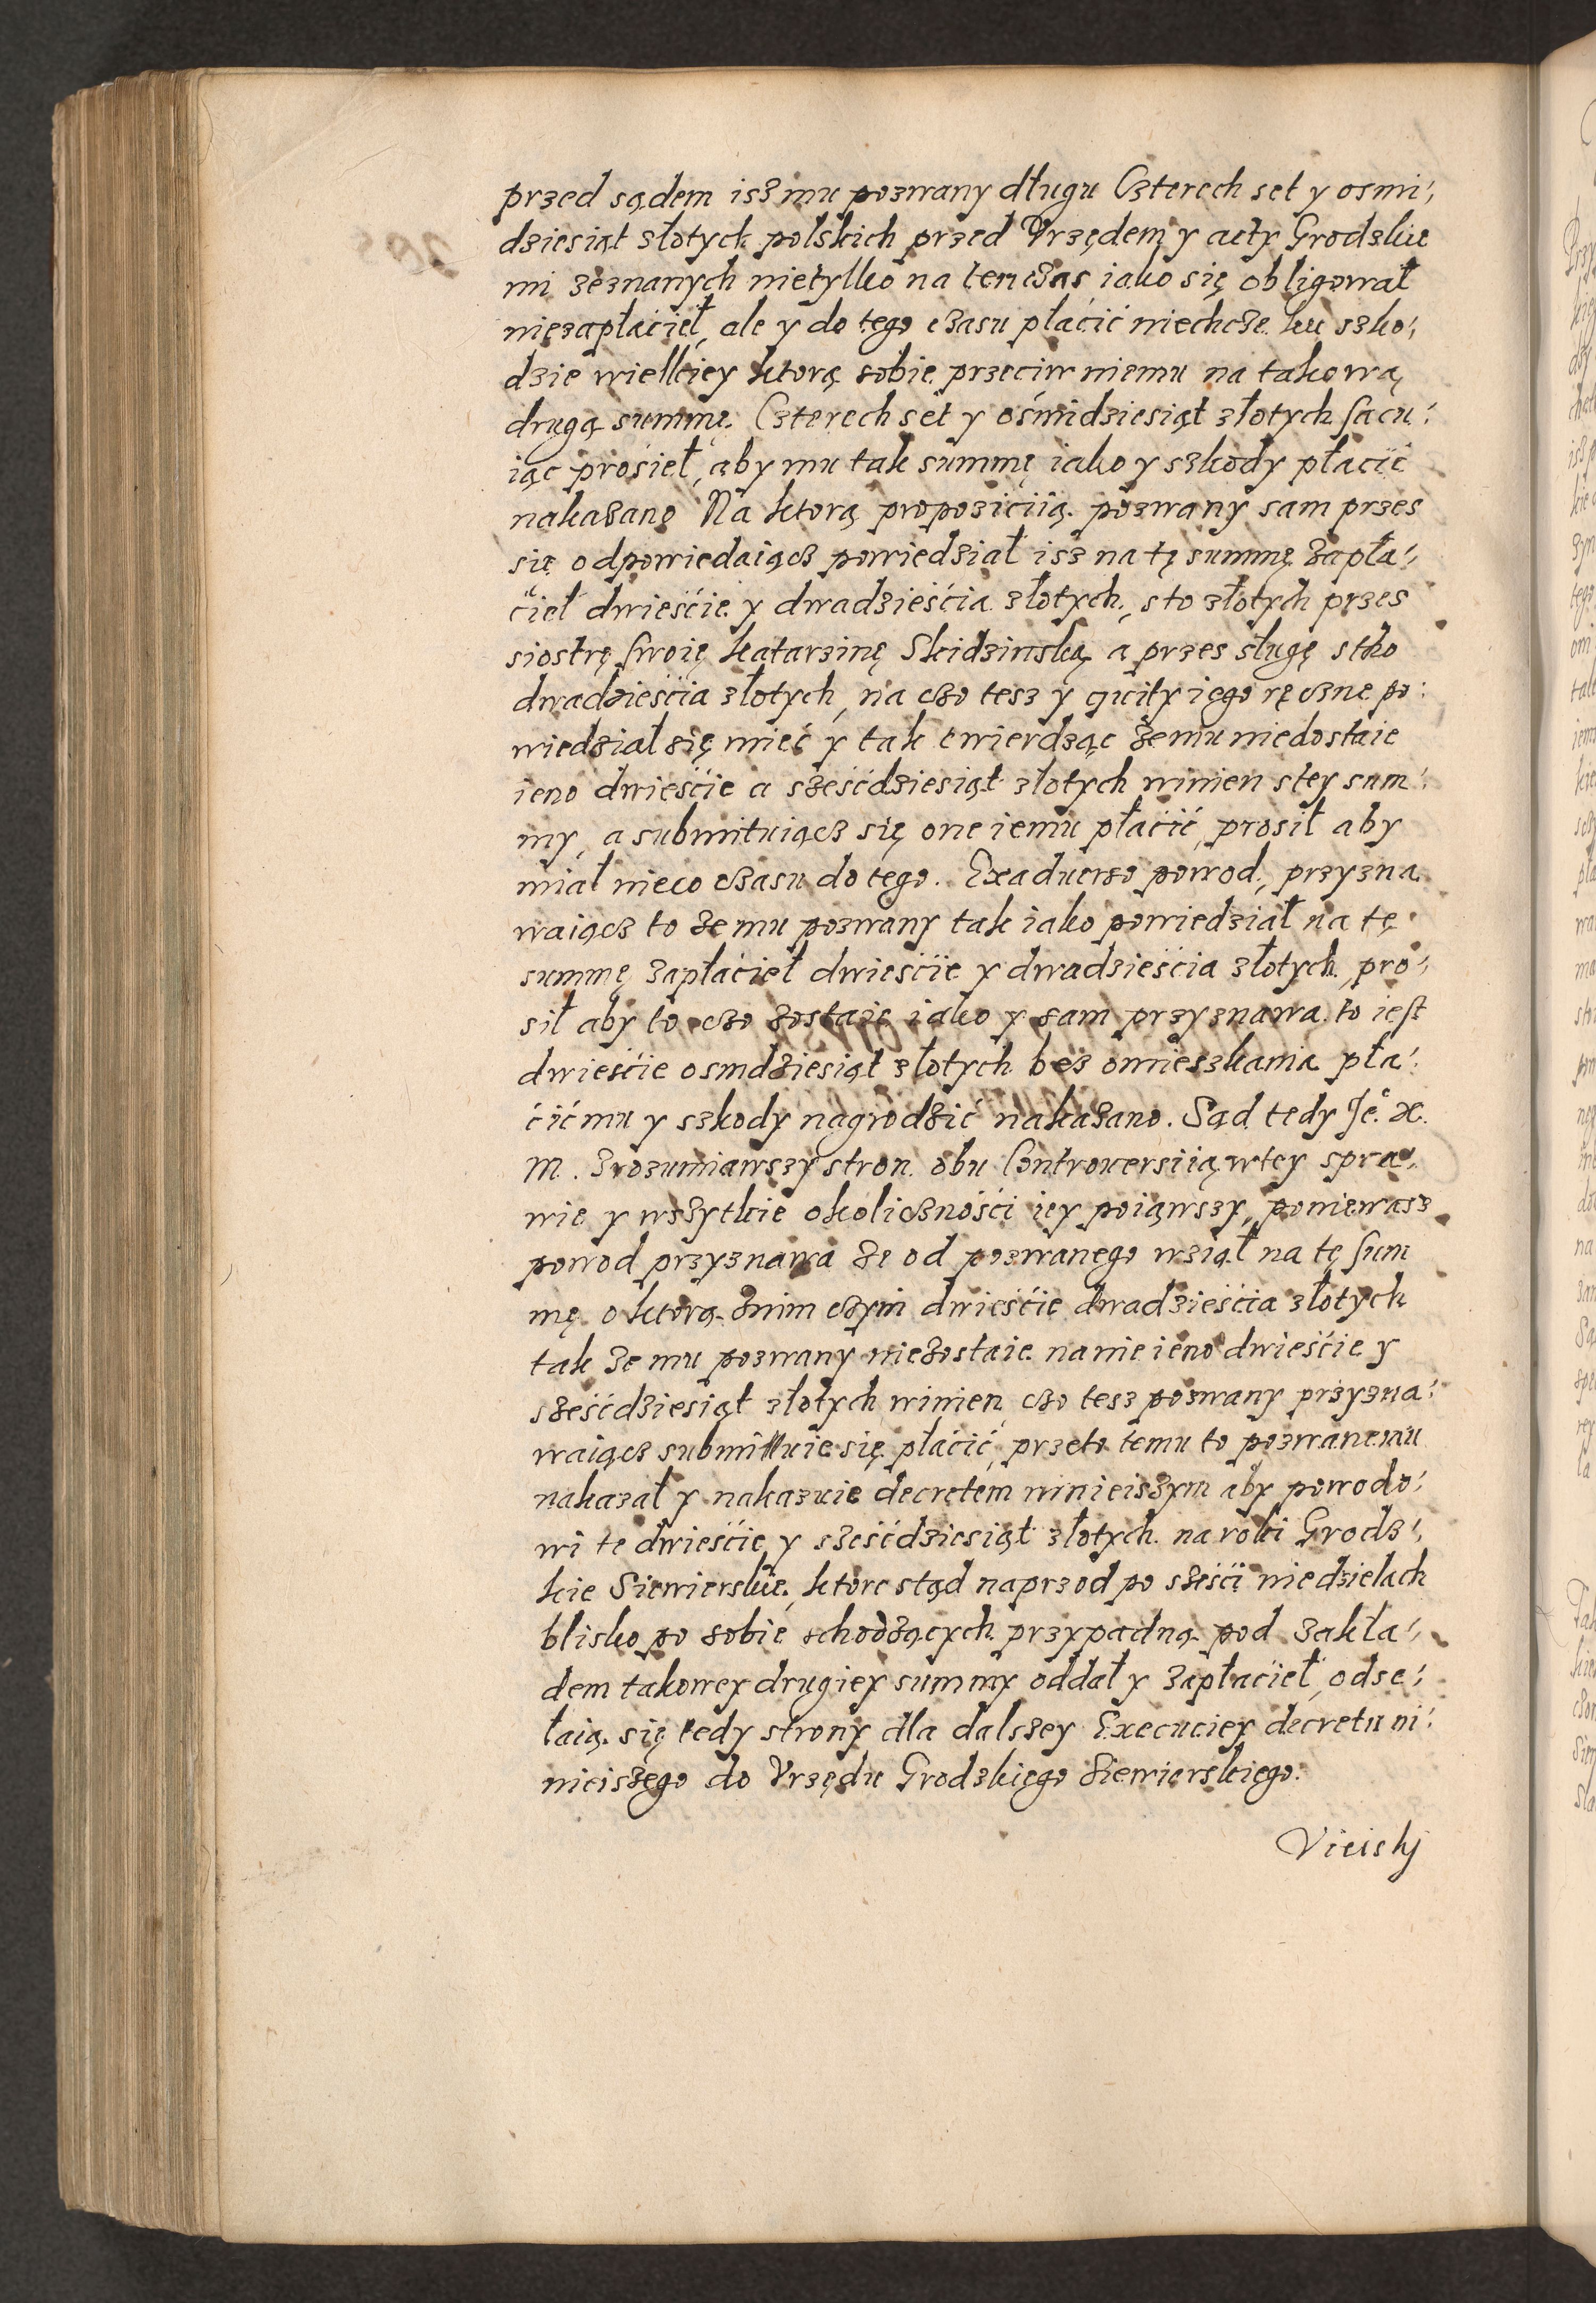 przed sądem isz mu pozwany długu Czterech set y osmi:
dziesiąt złotych polskich przed Vrzędem y acty Grodzkie
mi zeznanych nietylko na tenczas iako się obligował
niezapłacieł, ale y do tego czasu płacić niechcze ku szko:
dzie wielkiey ktorą sobie przeciw niemu na takową
drugą summę Czterech set y ośmidziesiąt złotych sacu:
iąc prosieł, aby mu tak summę iako y szkody płacić
nakazano Na ktorą propoziciią pozwany sam przes
się odpowiedaiącz powiedział isz na tę summę zapła:
cieł dwieście y dwadzieścia złotych, sto złotych przes
siostrę swoię Katarzinę Skidzinską a przes sługę stho
dwadzieścia złotych, na czo tesz y quity iego ręczne po:
wiedział się mieć y tak twierdząc że mu niedostaie
ieno dwieście a sześćdziesiąt złotych winien stey sum:
my, a submituiącz się one iemu płacić, prosił aby
miał nieco czasu do tego. Exaduerso powod, przyzna
waiącz to że mu pozwany tak iako powiedział na tę
summę zapłacieł dwieście y dwadzieścia złotych, pro:
sił aby to czo zostaie iako y sam przyznawa to iest
dwieście osmdziesiąt złotych bez omieszkania pła:
ćić mu y szkody nagrodzić nakazano. Sąd tedy Je. X.
M. Zrozumiawszy stron obu Controuersiią wtey spra:
wie y wszytkie okoliczności iey poiąwszy, poniewasz
powod przyznawa że od pozwanego wziął na tę sum
mę o ktorą znim czyni dwieście dwadzieścia złotych
tak że mu pozwany niezostaie nanie ieno dwieście y
sześćdziesiąt złotych winien, czo tesz pozwany przyzna:
waiącz submittuie się płacić, przeto temu to pozwanemu
nakazał y nakazuie decretem ninieiszym aby powodo:
wi te dwieście y sześćdziesiąt złotych na roki Grodz:
kie Siewierskie, ktore stąd naprzod po sześci niedzielach
blisko po sobie schodzących przypadną pod zakła:
dem takowey drugiey summy oddał y zapłacieł, odse:
łaią się tedy strony dla dalszey Execuciey decretu ni:
nieiszego do Vrzędu Grodzkiego Siewierskiego.
Vieiskj